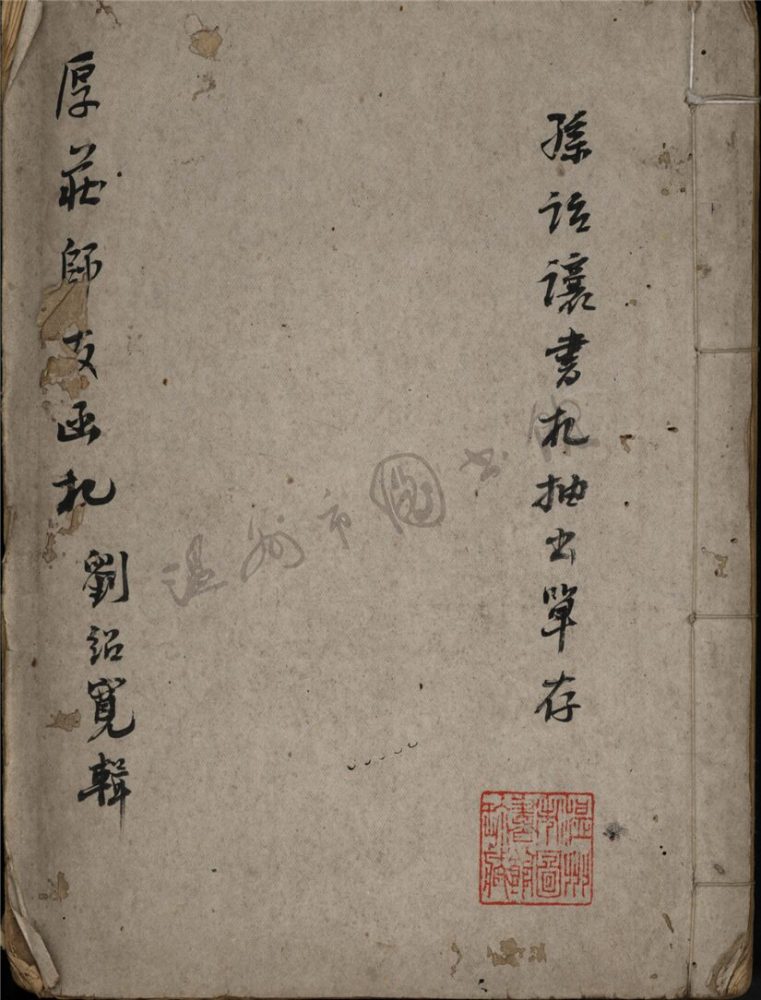 孫詒讓書札抽出單存
厚莊師友函札
劉紹寬輯
溫州市圖書館
溫州市圖書館珍藏